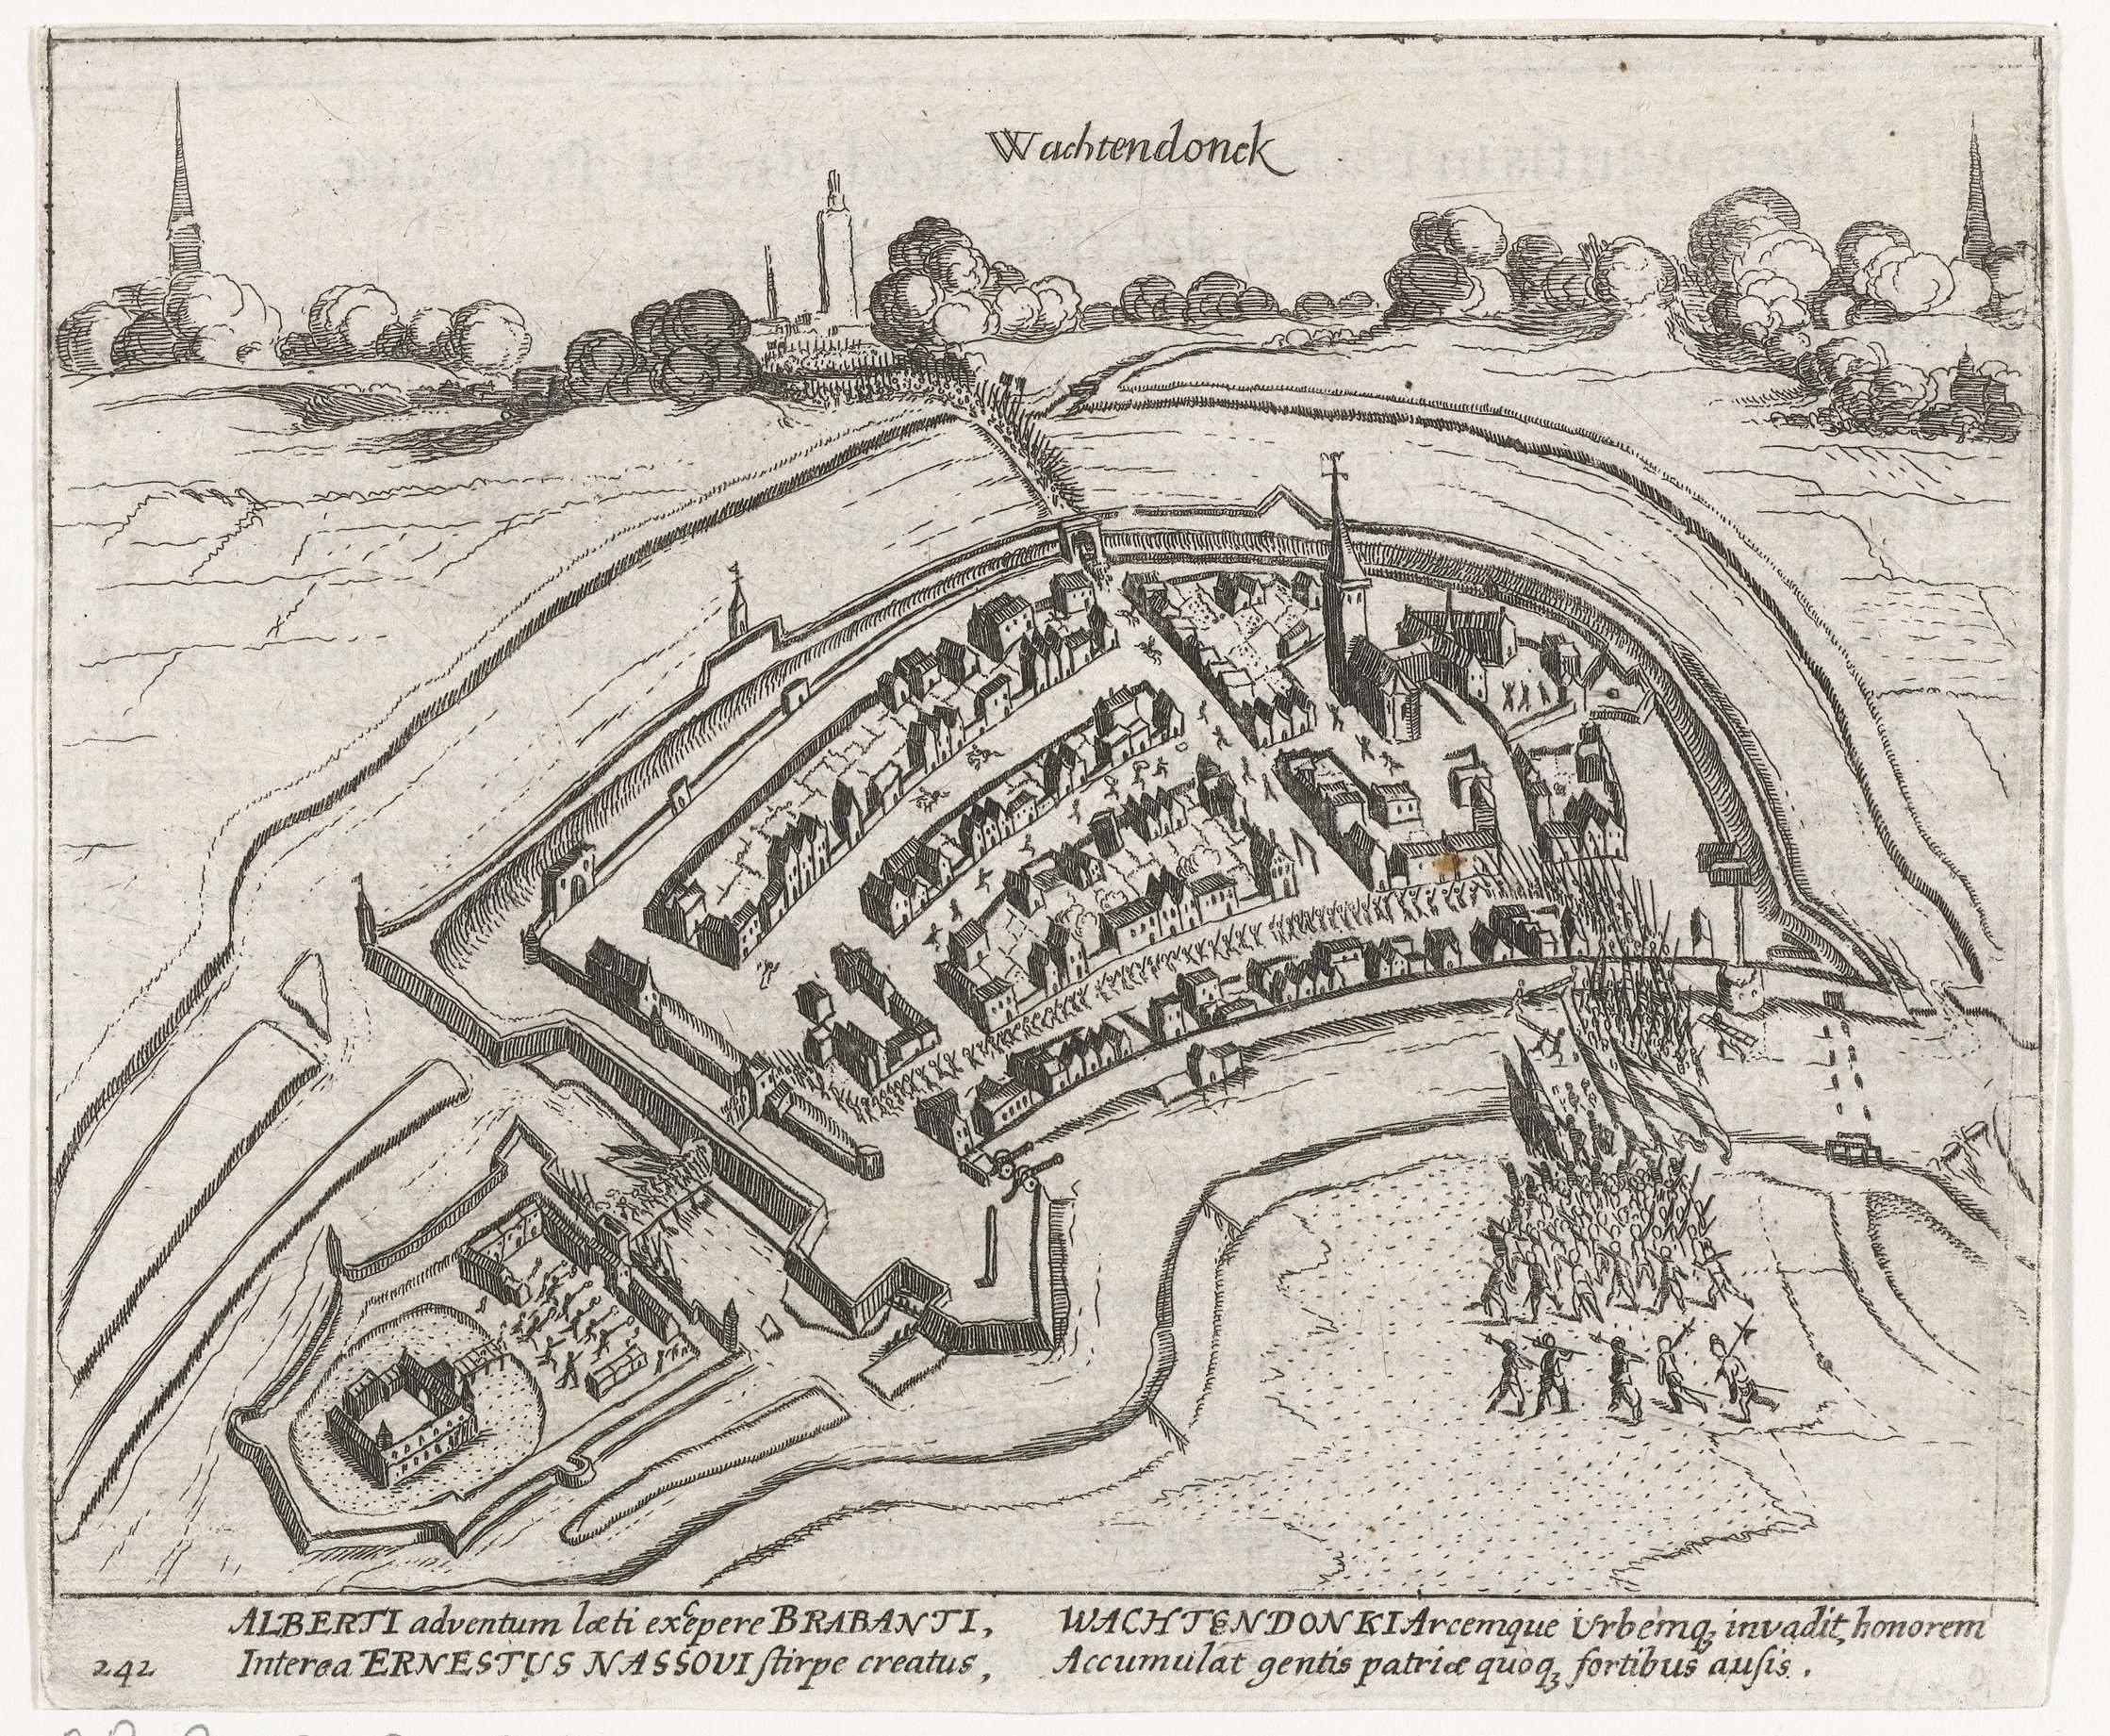 Wachtendonck
ALBERTI adventum læti excepere BRABANTI,
Interea ERNESTUS NASSOVI ſtirpe creatus,
WACHTENDONKI Arcemque Urbemq̢ invadit, honorem
Accumulat gentis patriæ quoq̢ fortibus auſis.
242